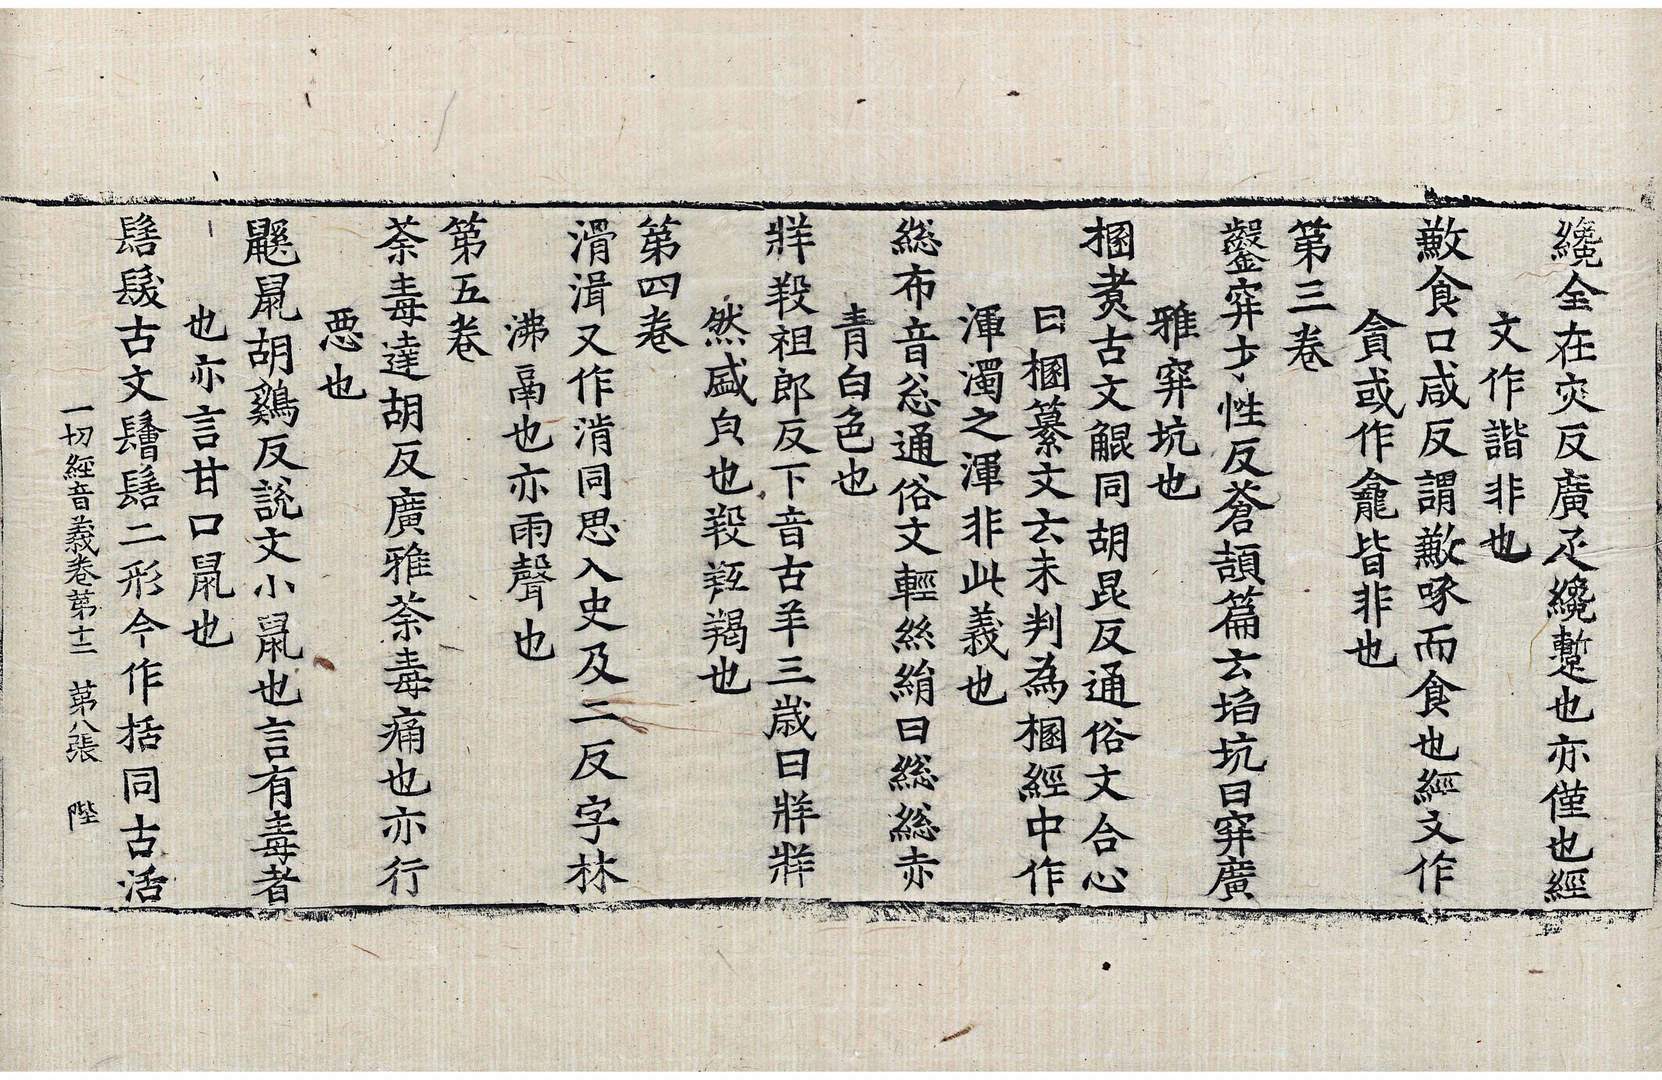 纔全在灾反廣疋纔蹔也亦僅也經
文作譛非也
歉食口咸反謂歉啄而食也經文作
貪或作龕皆非也
第三卷
鑿穽才性反蒼頡篇云埳坑曰穽廣
雅穽坑也
梱煑古文鯤同胡昆反通俗文合心
曰梱纂文云未判為梱經中作
渾濁之渾非此義也
総布音忩通俗文輕絲絹曰総総赤
青白色也
牂羖祖郎反下音古羊三歳曰牂牂
然盛皃也羖羖羯也
第四卷
滑湒又作㳙同思入史及二反字林
沸鬲也亦雨聲也
第五卷
荼毒達胡反廣雅荼毒痛也亦行
惡也
鼷鼠胡鷄反說文小鼠也言有毒者
也亦言甘口鼠也
髺髮古文鬠髺二形今作括同古活
一切經音義卷第十三　第八張　陛